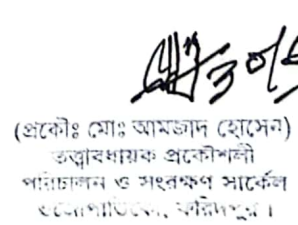 (প্রকৌঃ মোঃ আমজাদ হোসেন)
তত্ত্বাবধায়ক প্রকৌশলী
পরিচালন ও সংরক্ষণ সার্কেল
ওজোপাডিকো, ফরিদপুর।